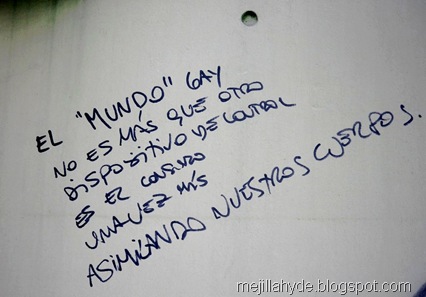 EL "MUNDO" GAY
NO ES MÁS QUE OTRO
DISPOSITIVO DE CONTROL
ES EL CONSUMO
UNA VEZ MÁS
ASIMILANDO NUESTROS CUERPOS.
mejillahyde.blogspot.com